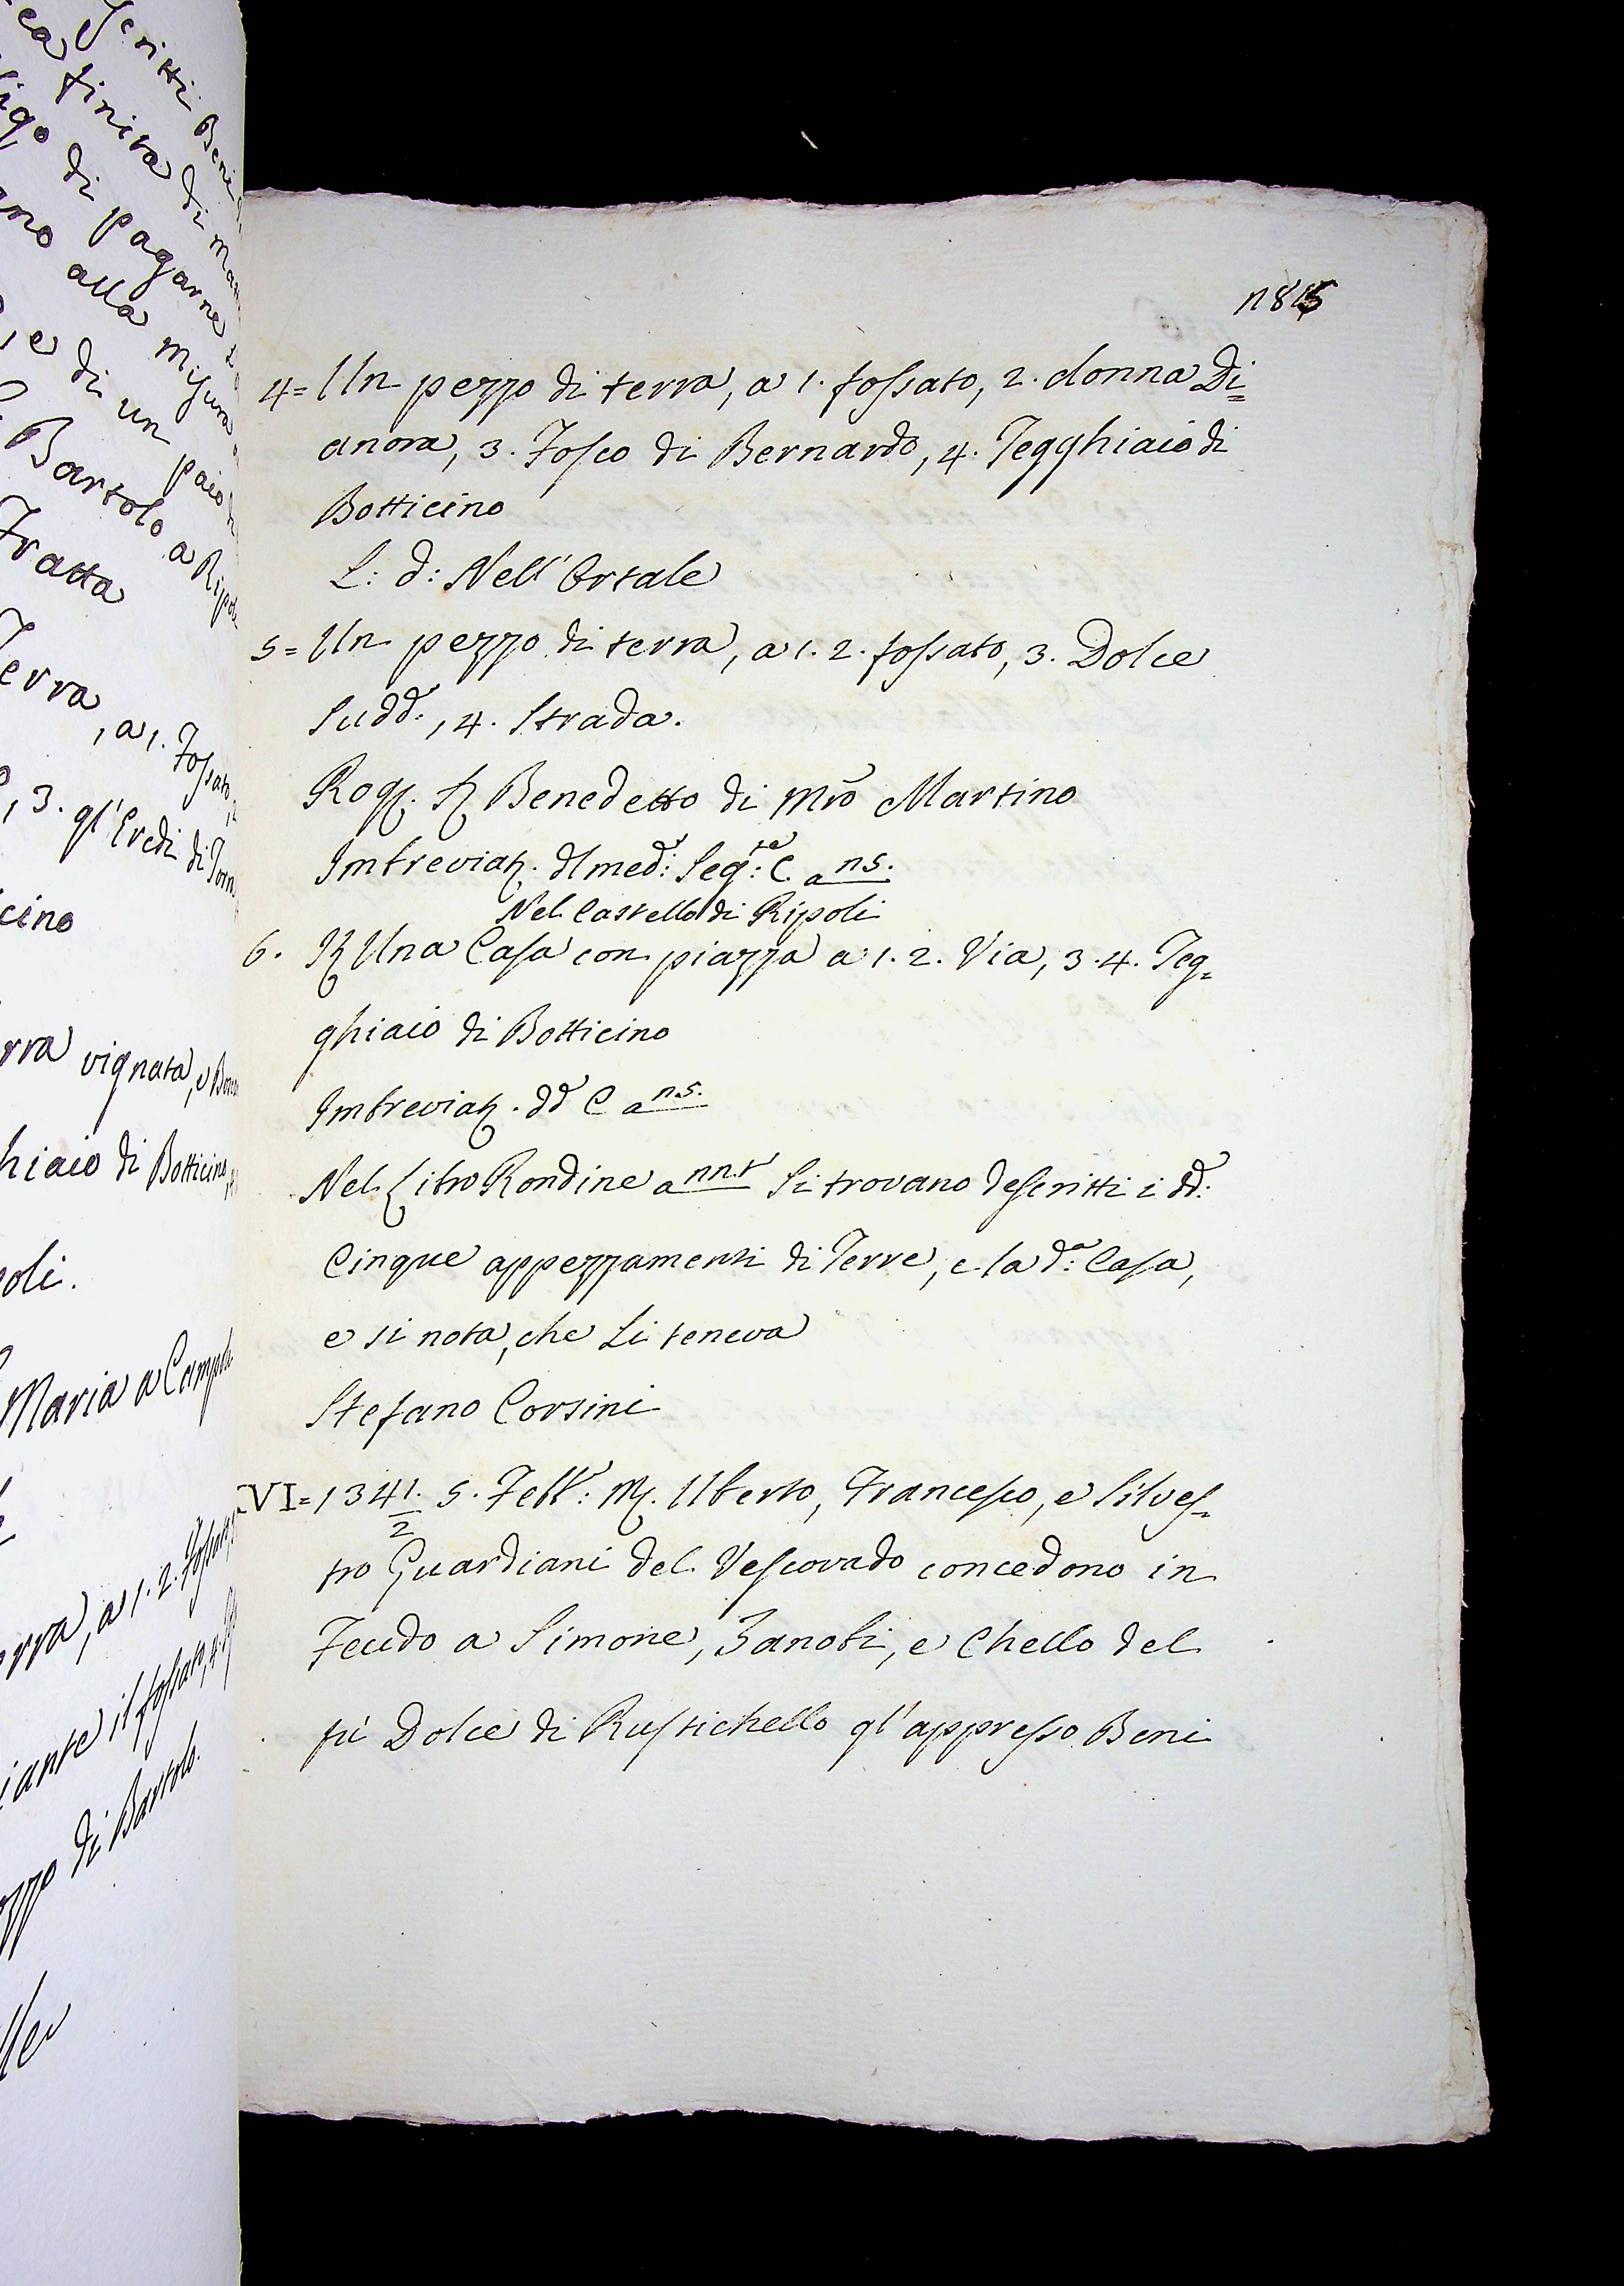 1815
4= Un pezzo di terra, a 1. fossato, 2. donna Di=
anora, 3. Fosco di Bernardo, 4. Tegghiaio di
Botticino
L: d: Nell'Ortale
5= Un pezzo di terra, a 1. 2. fossato, 3. Dolce
Sudd.º, 4. Strada.
Rog. Benedetto di Mrõ Martino
Imbreviaz. dl med:º Seg:te C. a ns.
Nel Castello di Ripoli
6. Una Casa con piazza a 1. 2. Via, 3. 4. Teg=
ghiaio di Botticino
Imbreviaz. ddº C a ns.
Nel Libro Rondine a nn.t Si trovano descritti i dd:i
Cinque appezzamenti di Terre, e la d:a Casa,
e si nota, che Li teneva
Stefano Corsini
VI= 1341/2. 5. Febb:º M. Uberto, Francesco, e Silves=
tro Guardiani del Vescovado concedono in
Feudo a Simone, Zanobi, e Chello del
fù Dolce di Rustichello gl'appresso Beni
scritti Beni
finita di
di pagarne
alla misura
, e di un paio
Bartolo a Ripoli
Fratta
Terra, a 1. Fossato,
, 3. gl'Eredi di
vignata, e
di Botticino,
Maria a
a 1. 2. Fossato,
il fossato, 4.
di Bartolo.